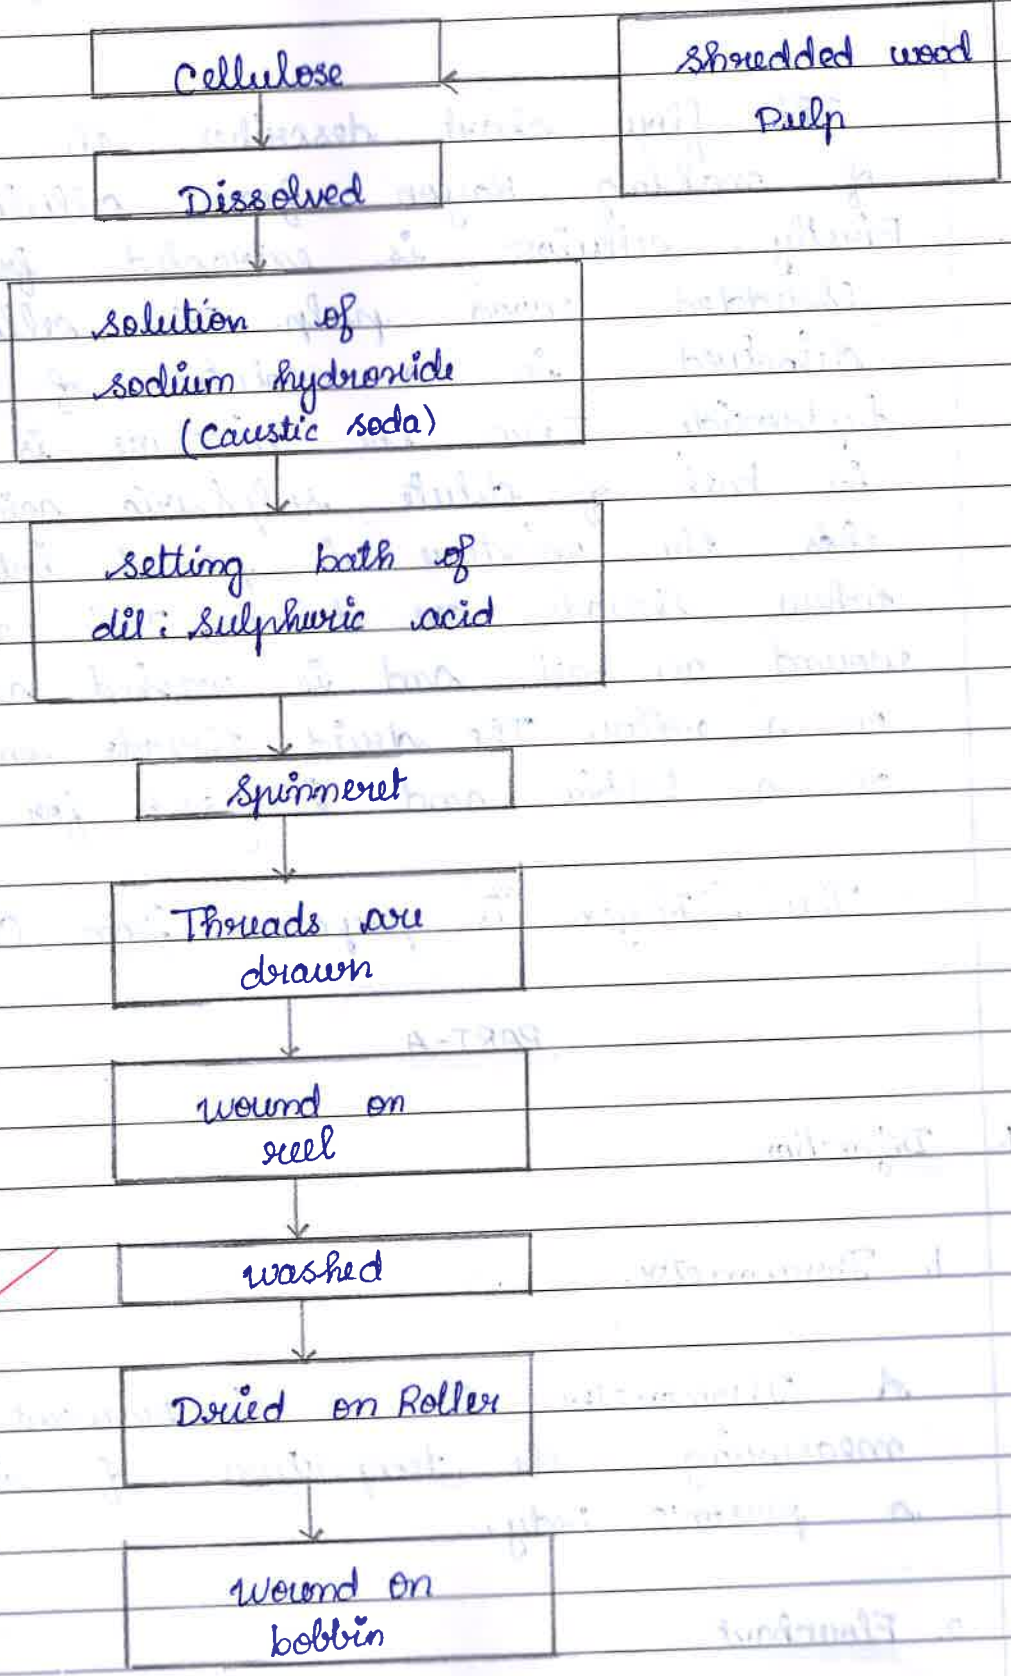 Cellulose
Shredded wood
Pulp
Dissolved
solution of
sodium hydroxide
(caustic soda)
setting bath of
dil: sulphuric acid
Spinneret
Threads are
drawn
wound on
reel
washed
Dried on Roller
wound on
bobbin